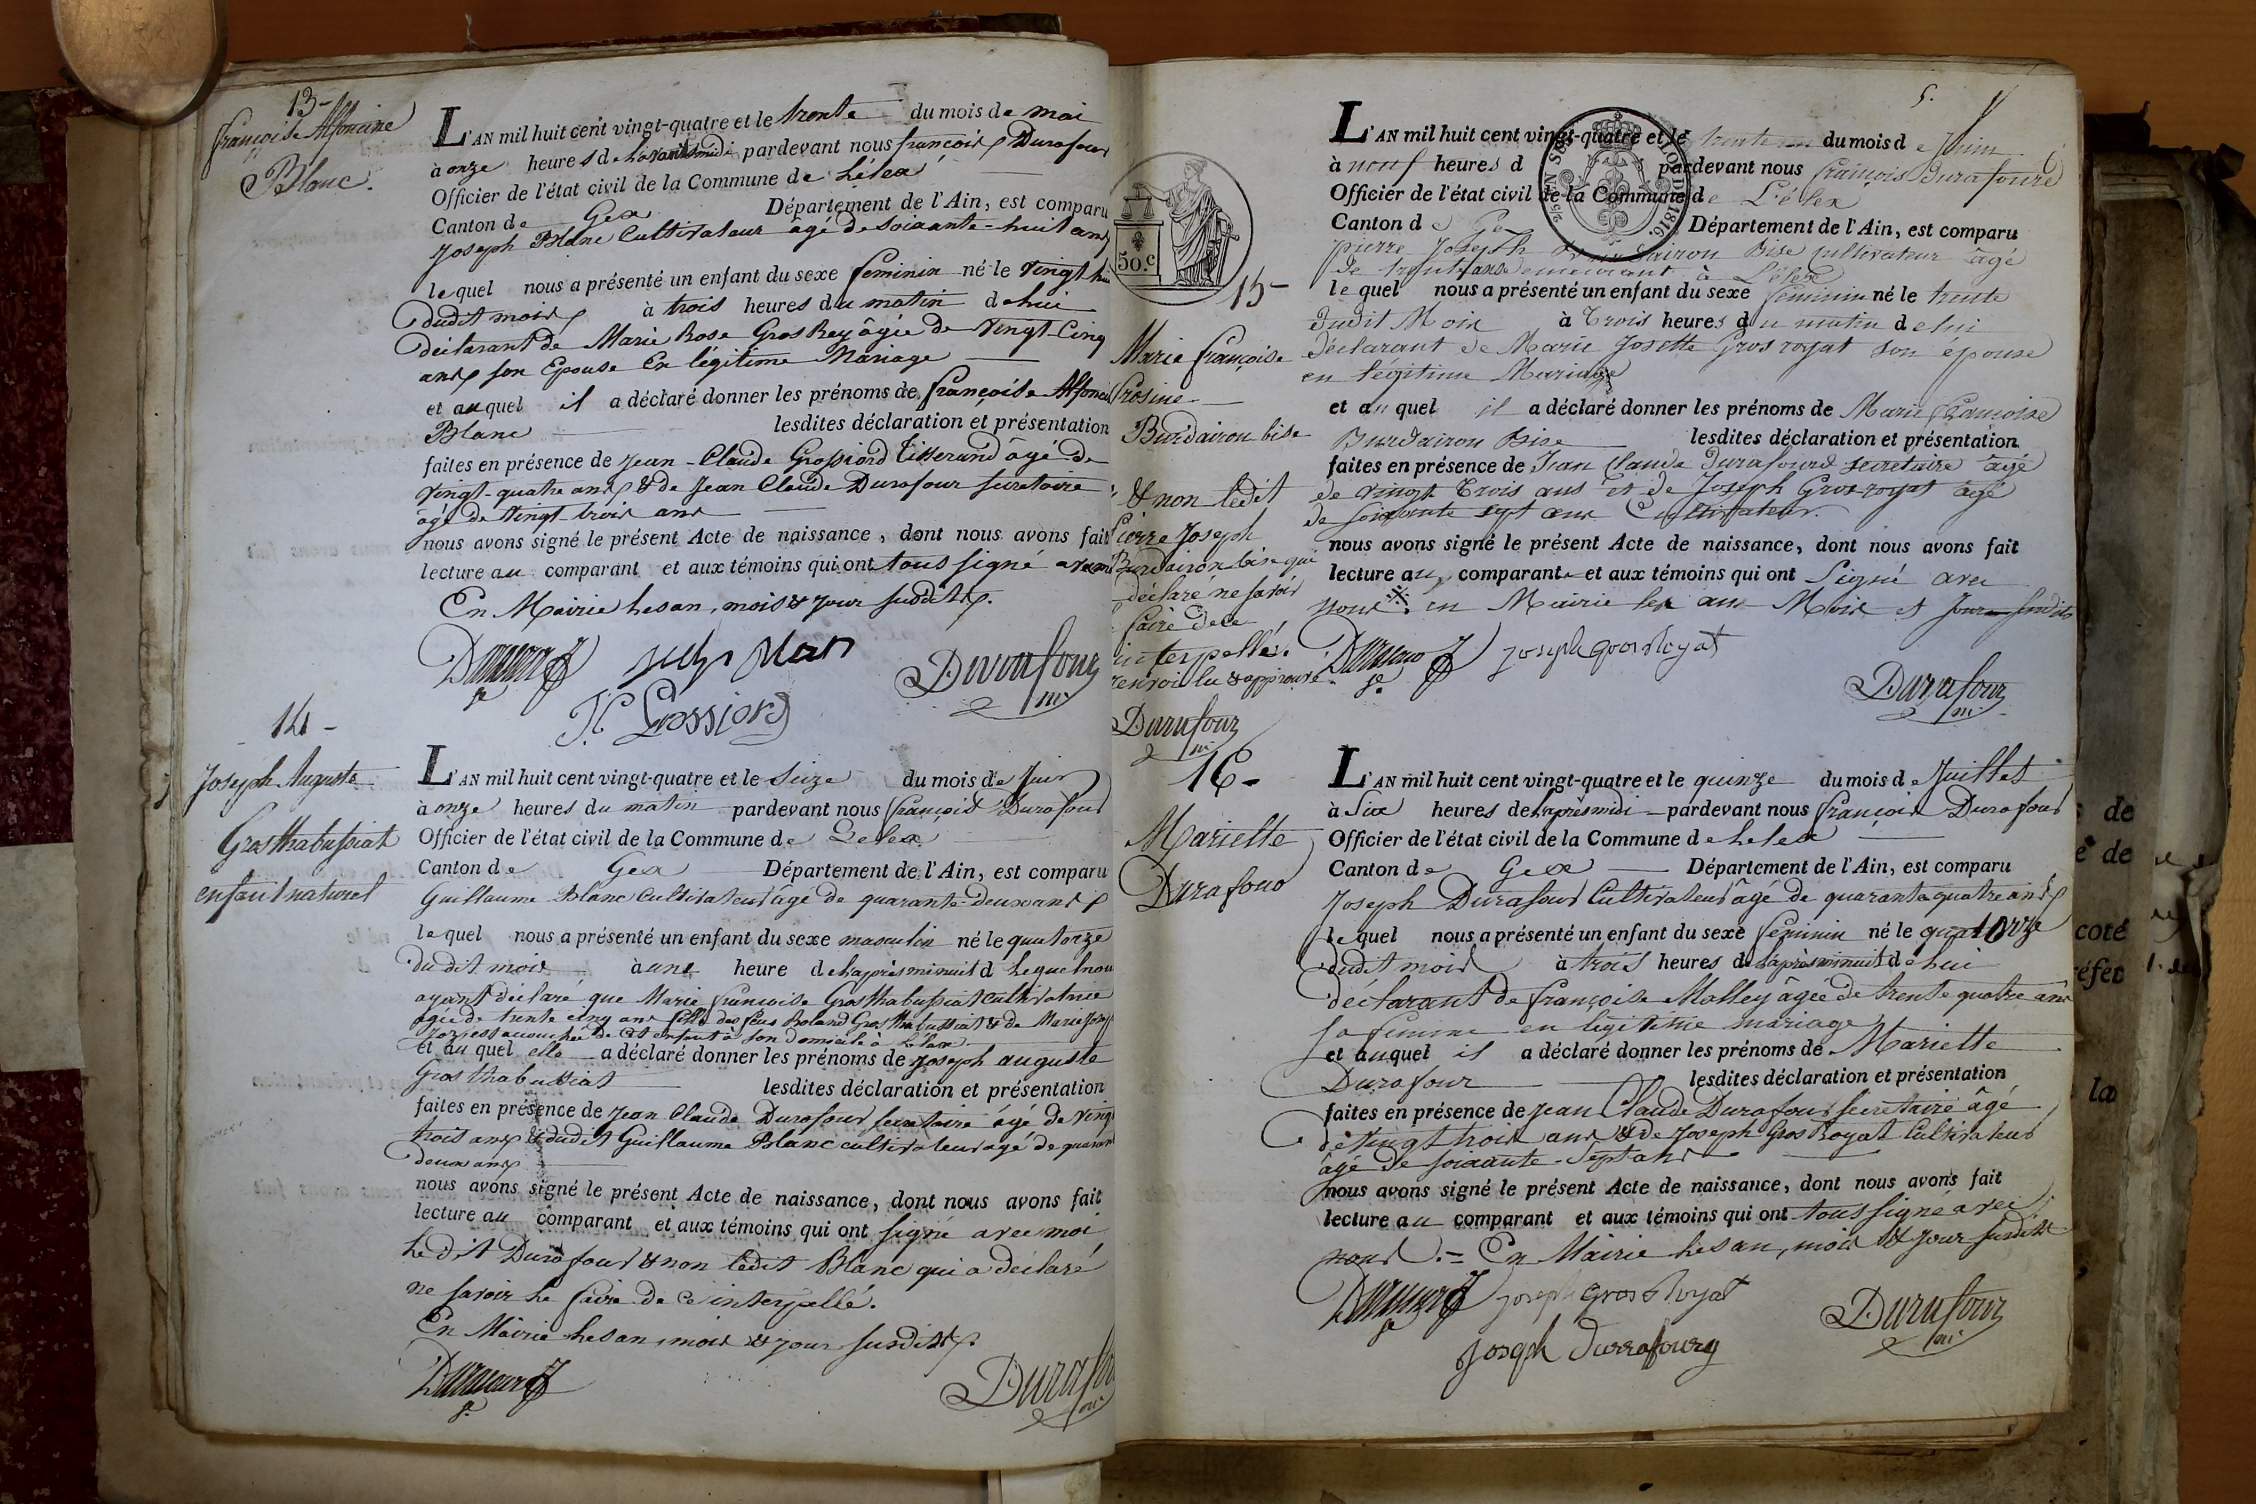 13-
françoise Alfoncine
Blanc.
L'AN mil huit cent vingt-quatre et le trente du mois de mai
à onze heures de pardevant nous françois Durafour
Officier de l'état civil de la Commune de Lélex
Canton de Gex Département de l'Ain, est comparu
Joseph Blanc Cultivateur agé de soixante-huit ans
lequel nous a présenté un enfant du sexe feminin né le vingt
dudit mois à trois heures du matin de lui
déclarant de Marie Rose GrosRey âgée de vingt-Cinq
ans son Epouse En légitime Mariage
et auquel il a déclaré donner les prénoms de françoise
Blanc lesdites déclaration et présentation
faites en présence de Jean-Claude Grossiord Tisserand âgé de
vingt-quatre ans & de Jean Claude Durafour secretaire
âgé de vingt-trois ans
nous avons signé le présent Acte de naissance, dont nous avons fait
lecture au comparant et aux témoins qui ont tous signé
En Mairie les an, mois & jour susdits.
Durafour
J C Grossiord
14-
Joseph Auguste
Grosthabussiat
enfant naturel
L'AN mil huit cent vingt-quatre et le Seize du mois de Juin
à onze heures du matin pardevant nous françois Durafour
Officier de l'état civil de la Commune de Lelex
Canton de Gex Département de l'Ain, est comparu
Guillaume Blanc Cultivateur âgé de quarante-deux ans
lequel nous a présenté un enfant du sexe masculin né le quatorze
dudit mois à une heure de laprès minuit d lequel nous
ayant déclaré que Marie françoise Grosthabussiat cultivatrice
agée de trente cinq ans fille des feus Roland Grosthabussiat & de Marie
accouchée de cet enfant à son domicile à Lelex
et auquel elle a déclaré donner les prénoms de Joseph auguste
Grosthabussiat lesdites déclaration et présentation
faites en présence de Jean Claude Durafour secretaire âgé de vingt
trois ans & dudit Guillaume Blanc cultivateur agé de quarante
deux ans
nous avons signé le présent Acte de naissance, dont nous avons fait
lecture au comparant et aux témoins qui ont signé avec moi
ledit Durafour & non ledit Blanc qui a déclaré
ne savoir le faire de ce interpellé.
En Mairie les an, mois & jour susdits.
5.
50.C
1816.
15-
Marie françoise
Prosine
Burdairon bise
& non ledit
Pierre Joseph
Burdairon bise qui
déclaré ne savoir
faire de ce
interpellé.
renvoi lu & approuvé
Durafour
L'AN mil huit cent vingt-quatre et le trente du mois de Juin
à neuf heures d pardevant nous françois Durafourd
Officier de l'état civil de la Commune de L'élex
Canton de Gex Département de l'Ain, est comparu
pierre Joseph Burdairon Bise cultivateur âgé
de trente ans demeurant à Lélex
lequel nous a présenté un enfant du sexe feminin né le trente
dudit Mois à trois heures du matin de lui
déclarant de Marie Josette Grosroyat son épouse
en légitime Mariage
et auquel il a déclaré donner les prénoms de Marie françoise
Burdairon Bise lesdites déclaration et présentation
faites en présence de Jean Claude Durafourd secretaire âgé
de vingt trois ans et de Joseph Grosroyat agé
de soixante sept ans Cultivateur.
nous avons signé le présent Acte de naissance, dont nous avons fait
lecture au comparant et aux témoins qui ont Signé avec
nous. en Mairie les an Mois et Jour susdits
joseph gros Royat
Durafour
16-
Mariette
Durafour
L'AN mil huit cent vingt-quatre et le quinze du mois de Juillet
à Six heures de laprès midi pardevant nous françois Durafour
Officier de l'état civil de la Commune de Lelex
Canton de Gex Département de l'Ain, est comparu
Joseph Durafour Cultivateur âgé de quarante quatre ans
lequel nous a présenté un enfant du sexe féminin né le quatorze
dudit mois à trois heures de laprès minuit de lui
déclarant de françoise Molley âgée de trente quatre ans
sa femme en légitime mariage
et auquel il a déclaré donner les prénoms de Mariette
Durafour lesdites déclaration et présentation
faites en présence de Jean Claude Durafour secretaire âgé
de vingt trois ans & de Joseph Gros Royat Cultivateur
âgé de soixante-Sept ans
nous avons signé le présent Acte de naissance, dont nous avons fait
lecture au comparant et aux témoins qui ont tous signé avec
nous.= En Mairie les an, mois & jour susdits
joseph Gros Royat
Durafour
joseph durrafourg
de
de
coté
la